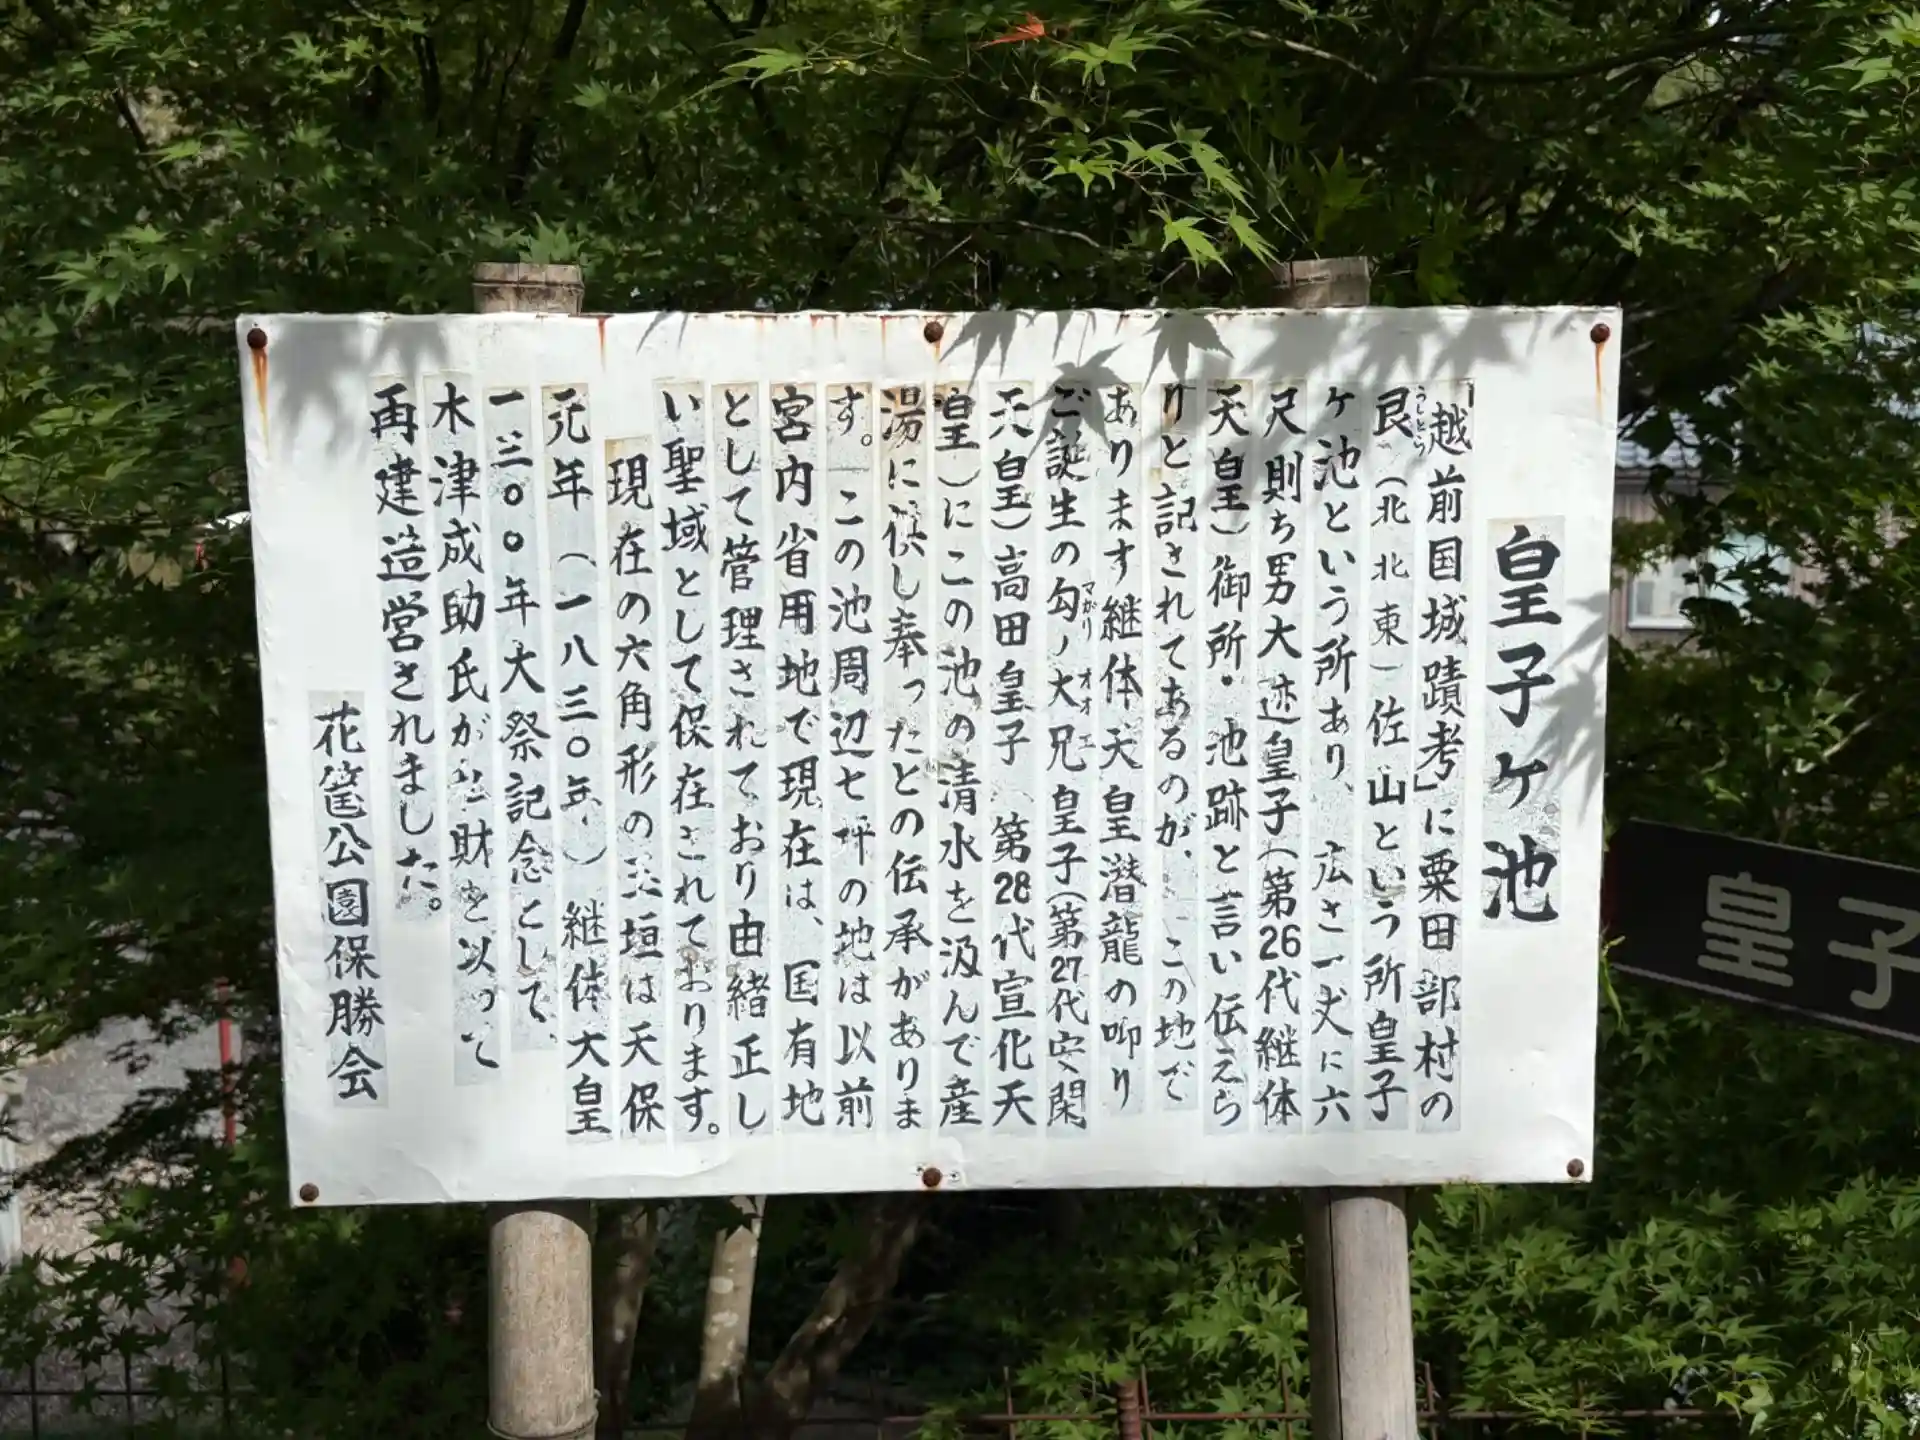 皇子ヶ池
「越前国城蹟考」に粟田部村の
艮(北北東)佐山という所皇子
うしとら
ケ池という所あり、広さ一丈に六
尺則ち男大迹皇子(第26代継体
天皇)御所・池跡と言い伝えら
りと記されてあるのが、この地で
あります継体天皇潜龍の御り
ご誕生の勾ノ大兄皇子(第27代安閑
マガリ オオエ
天皇)高田皇子 第28代宣化天
皇)にこの池の清水を汲んで産
湯に供し奉ったとの伝承がありま
す。この池周辺七坪の地は以前
宮内省用地で現在は、国有地
として管理されており由緒正し
い聖域として保存されております。
現在の六角形の玉垣は天保
元年(一八三〇年)継体大皇
一三〇〇年大祭記念として、
木津成助氏が私財を以って
再建造営されました。
花筐公園保勝会
皇子